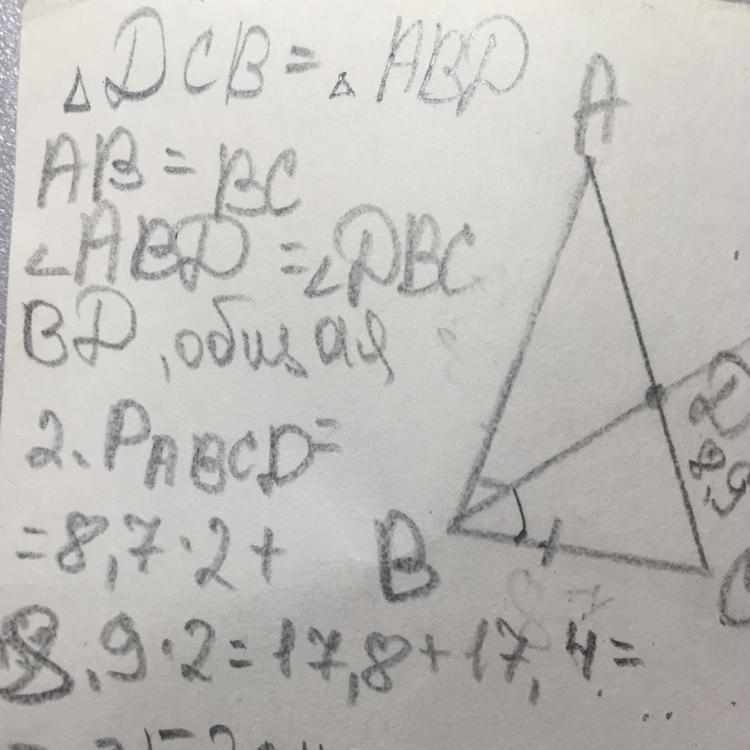 △DCB = △ABD
AB = BC
∠ABD = ∠DBC
BD, общая
2. PABCD =
= 8,7·2 +
8,9·2 = 17,8 + 17,4 =
A
D
8,9
B
C
8,7